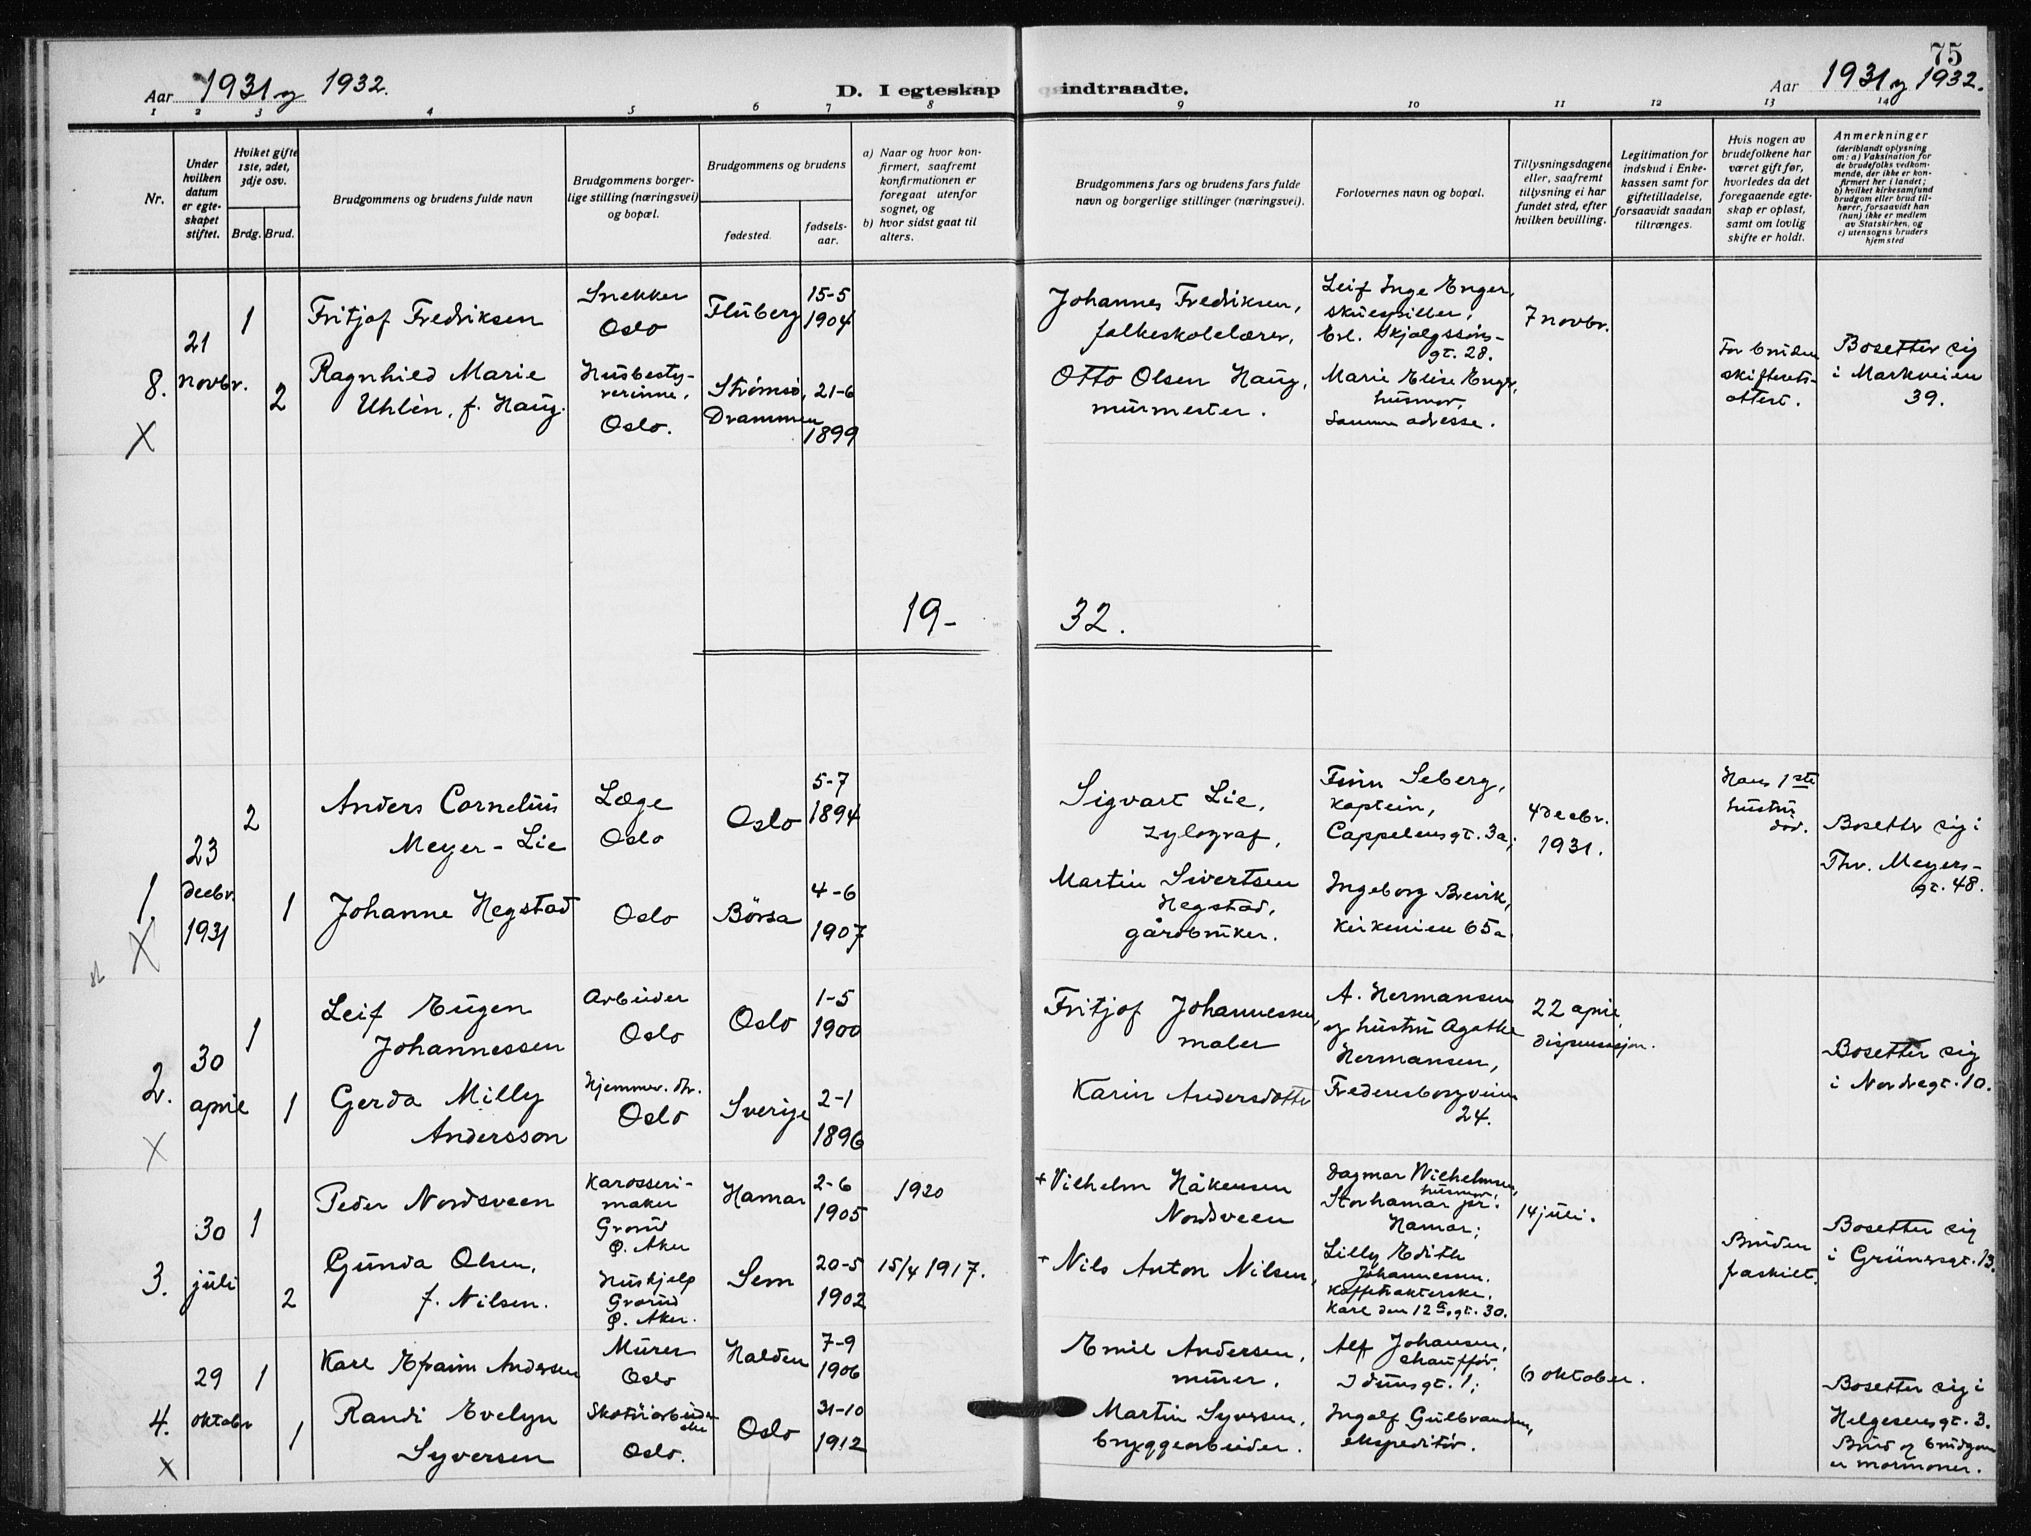 75
Aar 1931 og 1932.
D. I egteskap indtraadte.
Aar 1931 og 1932.
1 2 3 4 5 6 7 8 9 10 11 12 13 14
Nr.
Under
hvilken
datum
er egte-
skapet
stiftet.
Hviket gifte
1ste, 2det,
3dje osv.
Brdg. Brud.
Brudgommens og brudens fulde navn
Brudgommens borger-
lige stilling (næringsvei)
og bopæl.
Brudgommens og brudens
fødested.
fødsels-
aar.
a) Naar og hvor kon-
firmert, saafremt
konfirmationen er
foregaat utenfor
sognet, og
b) hvor sidst gaat til
alters.
Brudgommens fars og brudens fars fulde
navn og borgerlige stillinger (næringsvei).
Forlovernes navn og bopæl.
Tillysningsdagene
eller, saafremt
tillysning ei har
fundet sted, efter
hvilken bevilling.
Legitimation for
indskud i Enke-
kassen samt for
giftetilladelse,
forsaavidt saadan
tiltrænges.
Hvis nogen av
brudefolkene har
været gift før,
hvorledes da det
foregaaende egte-
skap er opløst,
samt om lovlig
skifte er holdt.
Anmerkninger
(deriblandt oplysning
om: a) Vaksination for
de brudefolks vedkom-
mende, der ikke er kon-
firmert her i landet;
b) hvilket kirkesamfund
brudgom eller brud til-
hører, forsaavidt han
(hun) ikke er medlem
av Statskirken, og
c) utensogns bruders
hjemsted
8.
X
21
novbr.
1
Fritjof Fredriksen
Snekker
Oslo
Fluberg
15-5
1904
Johannes Fredriksen,
folkeskolelærer.
Leif Inge Enger,
skuespiller,
Erl. Skjalgssøns-
gt. 28.
7 novbr.
2
Ragnhild Marie
Uhlèn, f. Haug.
Husbesty-
rerinne,
Oslo.
Strømsø,
Drammen
21-6
1899
Otto Olsen Haug,
murmester.
Marie Elise Enger,
husmor,
Samme adresse.
For bruden
skifterets-
attest.
Bosetter sig
i Markveien
39.
19- 32.
1
X
23
decbr.
1931
2
Anders Cornelius
Meyer-Lie
Læge
Oslo
Oslo
5-7
1894
Sigvart Lie,
zylograf,
Finn Seberg,
kaptein,
Cappelensgt. 3a;
4 decbr.
1931.
Hans 1ste
hustru
død.
Bosetter sig i
Thv. Meyers-
gt. 48.
1
Johanne Hegstad
Oslo
Børsa
4-6
1907
Martin Sivertsen
Hegstad,
gårdbruker.
Ingeborg Brevik,
Kirkeveien 65a.
2.
X
30
april
1
Leif Eugen
Johannessen
Arbeider
Oslo
Oslo
1-5
1900
Fritjof Johannessen,
maler
A. Hermansen
og hustru Agathe
Hermansen,
Fredensborgveien
24.
22 april
dispensasjon.
Bosetter sig
i Nordregt. 10.
1
Gerda Milly
Andersson
Hjemmev. dtr.
Oslo
Sverige
2-1
1896
Karin Andersdotter
3.
30
juli
1
Peder Nordsveen
Karosseri-
maker
Grorud
Ø. Aker
Hamar
2-6
1905
1920
+ Vilhelm Håkensen
Nordsveen
Dagmar Wilhelmsen,
husmor,
Storhamar pr.
Hamar;
14 juli.
2
Gunda Olsen,
f. Nilsen.
Hushjelp
Grorud
Ø. Aker.
Sem
20-5
1902
15/4 1917.
Nils Anton Nilsen,
Lilly Edith
Johannessen.
Kaffetrakterske.
Karl den 12tes gt. 30.
Bruden
fraskilt.
Bosetter sig
i Grünersgt. 13.
4.
X
29
oktobr
1
Karl Efraim Andersen
Murer
Oslo
Halden
7-9
1906
Emil Andersen,
murer.
Alf Johansen,
chauffør,
Idunsgt. 1;
6 oktober.
1
Randi Evelyn
Syversen
Skotøiarbeider
ske
Oslo.
Oslo
31-10
1912
Martin Syversen,
bryggearbeider.
Ingolf Gulbrandsen,
ekspeditør.
Bosetter sig i
Helgesensgt. 3.
Brud og brudgom
er mormoner.